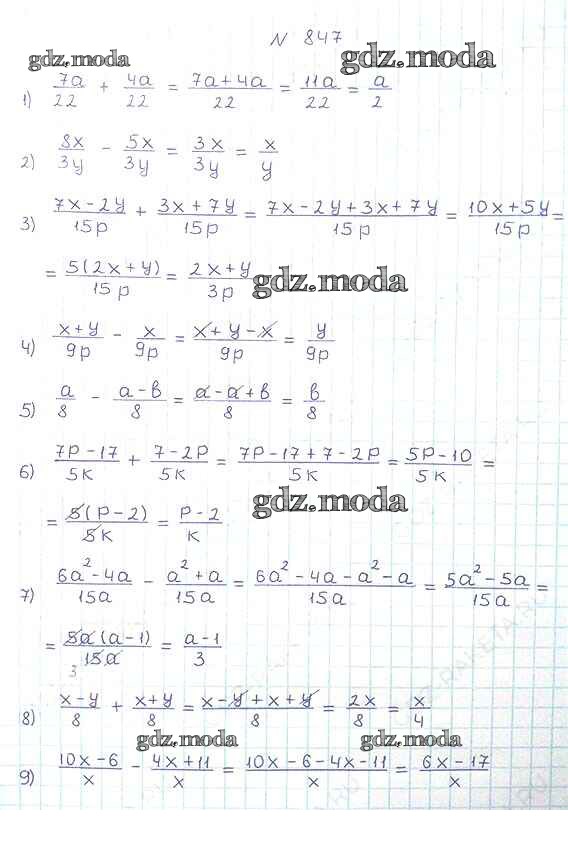 N 847
gdz.moda gdz.moda
1) 7a/22 + 4a/22 = 7a+4a/22 = 11a/22 = a/2
2) 8x/3y - 5x/3y = 3x/3y = x/y
3) 7x-2y/15p + 3x+7y/15p = 7x-2y+3x+7y/15p = 10x+5y/15p =
= 5(2x+y)/15p = 2x+y/3p gdz.moda
4) x+y/9p - x/9p = x+y-x/9p = y/9p
5) a/8 - a-в/8 = a-a+в/8 = в/8
6) 7p-17/5k + 7-2p/5k = 7p-17+7-2p/5k = 5p-10/5k =
= 5(p-2)/5k = p-2/k gdz.moda
7) 6a²-4a/15a - a²+a/15a = 6a²-4a-a²-a/15a = 5a²-5a/15a =
= 5a(a-1)/3 15a = a-1/3
8) x-y/8 + x+y/8 = x-y+x+y/8 = 2x/8 = x/4
gdz.moda gdz.moda
9) 10x-6/x - 4x+11/x = 10x-6-4x-11/x = 6x-17/x